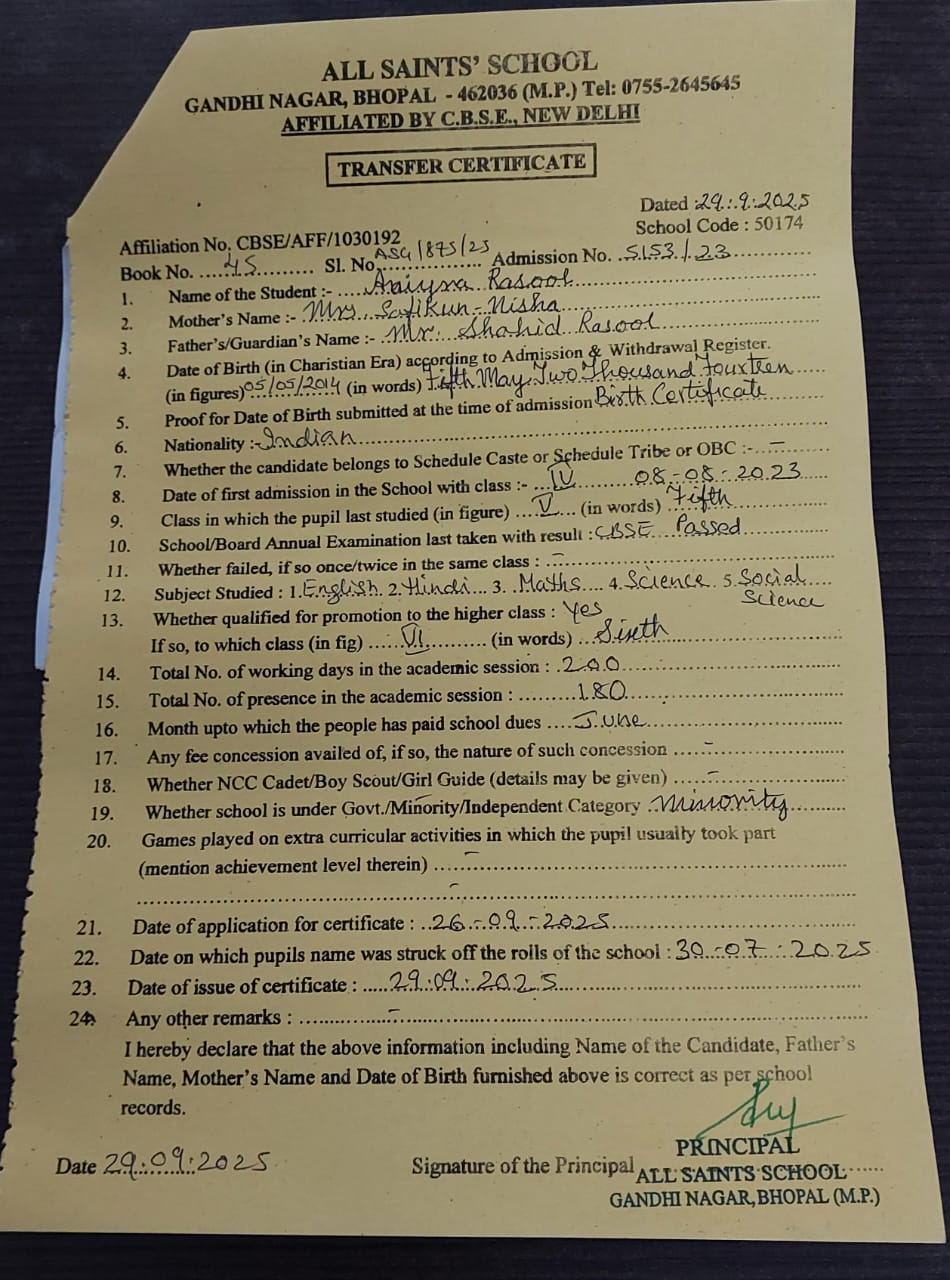 ALL SAINTS' SCHOOL
GANDHI NAGAR, BHOPAL - 462036 (M.P.) Tel: 0755-2645645
AFFILIATED BY C.B.S.E., NEW DELHI
TRANSFER CERTIFICATE
Dated :29.:.9.:2025
School Code : 50174
Affiliation No. CBSE/AFF/1030192
Book No. .....45.......... Sl. No. ASG/875/25 Admission No. ..5153./.23
1. Name of the Student :- .....Rasool
2. Mother's Name :- Mrs. Safikun-Nisha
3. Father's/Guardian's Name :- Mr. Shahid Rasool
4. Date of Birth (in Charistian Era) according to Admission & Withdrawal Register.
(in figures) 05/05/2014 (in words) Fifth May Two Thousand Fourteen
5. Proof for Date of Birth submitted at the time of admission Birth Certificate
6. Nationality :- Indian
7. Whether the candidate belongs to Schedule Caste or Schedule Tribe or OBC :- –
8. Date of first admission in the School with class :- ...IV 08-08-2023
9. Class in which the pupil last studied (in figure) ....V.... (in words) Fifth
10. School/Board Annual Examination last taken with result : CBSE Passed
11. Whether failed, if so once/twice in the same class : –
12. Subject Studied : 1. English. 2. Hindi... 3. Maths.... 4. Science. 5. Social
Science
13. Whether qualified for promotion to the higher class : Yes
If so, to which class (in fig) .....VI......... (in words) ..Sixth
14. Total No. of working days in the academic session : .200
15. Total No. of presence in the academic session : ........180
16. Month upto which the people has paid school dues ....June
17. Any fee concession availed of, if so, the nature of such concession ......–
18. Whether NCC Cadet/Boy Scout/Girl Guide (details may be given) ......–
19. Whether school is under Govt./Minority/Independent Category Minority
20. Games played on extra curricular activities in which the pupil usually took part
(mention achievement level therein) ......–
–
21. Date of application for certificate : ..26-09-2025
22. Date on which pupils name was struck off the rolls of the school : 30-07-2025
23. Date of issue of certificate : .....29.:09.:2025
24. Any other remarks : ..............–
I hereby declare that the above information including Name of the Candidate, Father's
Name, Mother's Name and Date of Birth furnished above is correct as per school
records.
Date 29:09:2025
Signature of the Principal
PRINCIPAL
ALL SAINTS SCHOOL
GANDHI NAGAR, BHOPAL (M.P.)